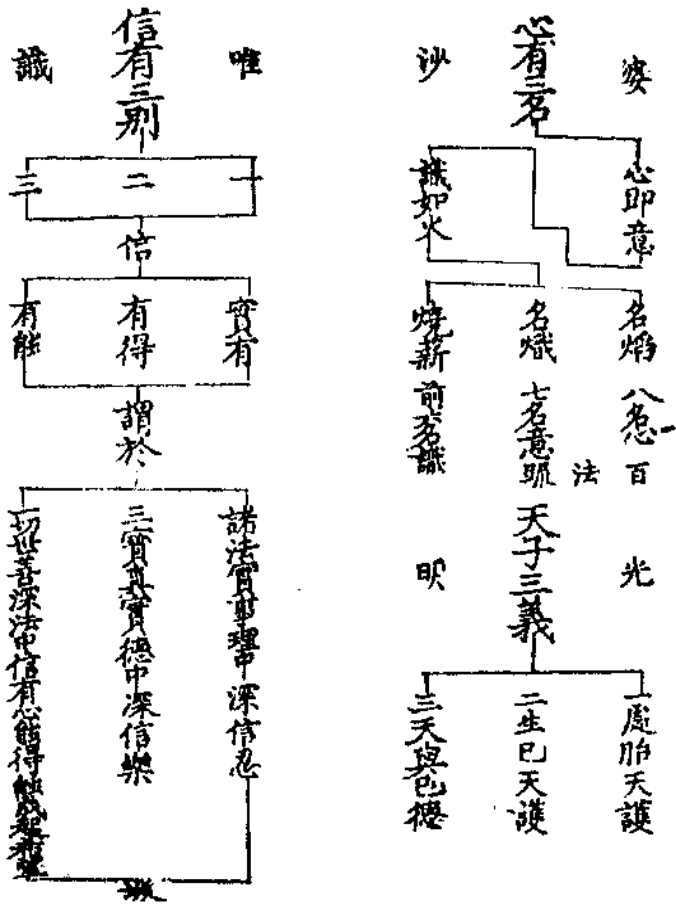 婆
沙
心有三名
心即意
識如火
名焰
名熾
燒薪
八名心
七名意
前六名識
百
法
疏
光
明
天子三義
一處胎天護
二生已天護
三天與己德
唯
識
信有三別
一
二
三
信
實有
有得
有能
謂於
諸法實事理中深信忍
三寶真實德中深信樂
一切世善深法中信有心能得能成起希望